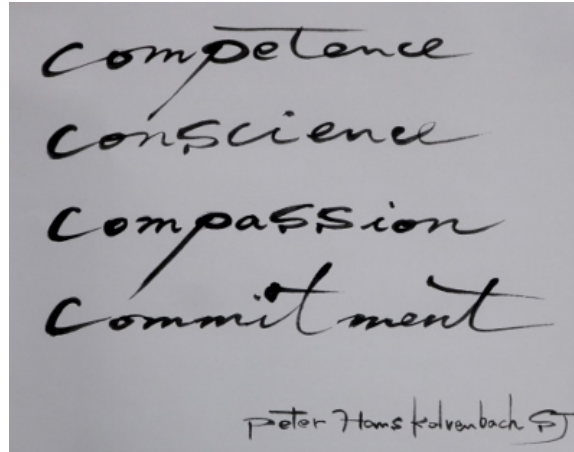 Competence
Conscience
Compassion
Commitment
Peter Hans Kolvenbach SJ